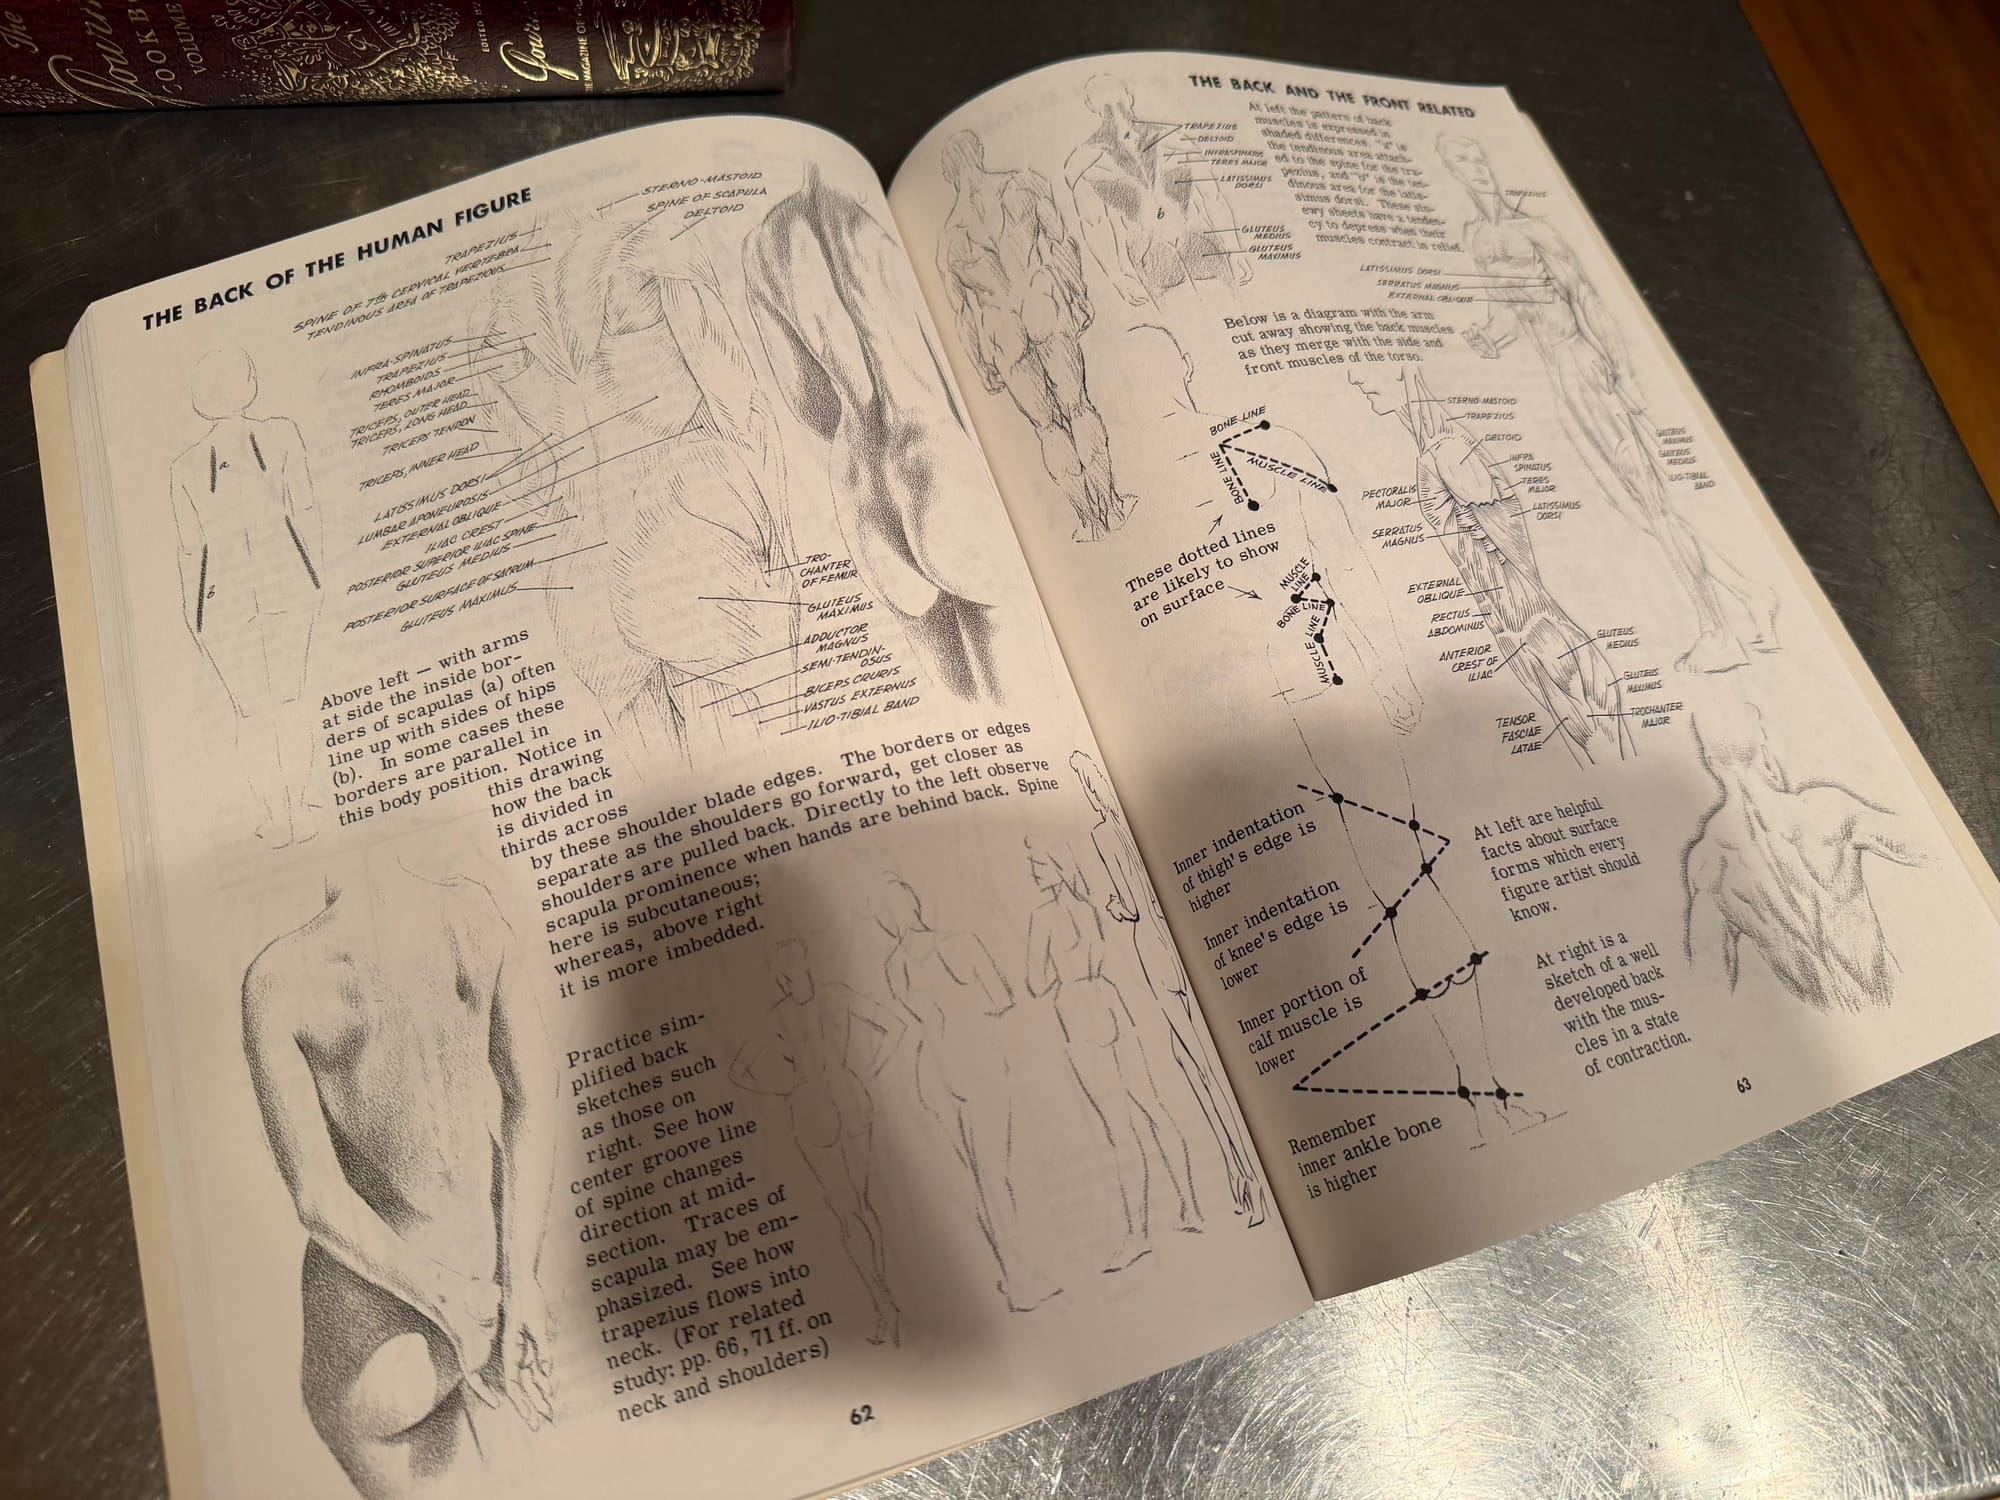 The
Gourmet
COOKBOOK
VOLUME
EDITED BY
Gourmet
THE MAGAZINE OF
THE BACK OF THE HUMAN FIGURE
STERNO-MASTOID
SPINE OF SCAPULA
DELTOID
TRAPEZIUS
SPINE OF 7th CERVICAL VERTEBRA
TENDINOUS AREA OF TRAPEZIOUS
INFRA-SPINATUS
TRAPEZIUS
RHOMBOIDS
TERES MAJOR
TRICEPS, OUTER HEAD
TRICEPS, LONG HEAD
TRICEPS TENDON
TRICEPS, INNER HEAD
LATISSIMUS DORSI
LUMBAR APONEUROSIS
EXTERNAL OBLIQUE
ILIAC CREST
POSTERIOR SUPERIOR ILIAC SPINE
GLUTEUS MEDIUS
POSTERIOR SURFACE OF SACRUM
GLUTEUS MAXIMUS
a
b
TRO-
CHANTER
OF FEMUR
GLUTEUS
MAXIMUS
ADDUCTOR
MAGNUS
SEMI-TENDIN-
OSUS
BICEPS CRURIS
VASTUS EXTERNUS
ILIO-TIBIAL BAND
Above left — with arms
at side the inside bor-
ders of scapulas (a) often
line up with sides of hips
(b). In some cases these
borders are parallel in
this body position. Notice in
this drawing
how the back
is divided in
thirds across
by these shoulder blade edges. The borders or edges
separate as the shoulders go forward, get closer as
shoulders are pulled back. Directly to the left observe
scapula prominence when hands are behind back. Spine
here is subcutaneous;
whereas, above right
it is more imbedded.
Practice sim-
plified back
sketches such
as those on
right. See how
center groove line
of spine changes
direction at mid-
section. Traces of
scapula may be em-
phasized. See how
trapezius flows into
neck. (For related
study: pp. 66, 71 ff. on
neck and shoulders)
62
THE BACK AND THE FRONT RELATED
At left the pattern of back
muscles is expressed in
shaded differences. "a" is
the tendinous area attach-
ed to the spine for the tra-
pezius, and "b" is the ten-
dinous area for the latis-
simus dorsi. These sin-
ewy sheets have a tenden-
cy to depress when their
muscles contract in relief.
a
b
TRAPEZIUS
DELTOID
INFRASPINATUS
TERES MAJOR
LATISSIMUS
DORSI
GLUTEUS
MEDIUS
GLUTEUS
MAXIMUS
TRAPEZIUS
LATISSIMUS DORSI
SERRATUS MAGNUS
EXTERNAL OBLIQUE
GLUTEUS
MAXIMUS
GLUTEUS
MEDIUS
ILIO-TIBIAL
BAND
Below is a diagram with the arm
cut away showing the back muscles
as they merge with the side and
front muscles of the torso.
BONE LINE
MUSCLE LINE
BONE LINE
These dotted lines
are likely to show
on surface
MUSCLE
LINE
BONE LINE
MUSCLE LINE
STERNO-MASTOID
TRAPEZIUS
DELTOID
INFRA
SPINATUS
TERES
MAJOR
LATISSIMUS
DORSI
PECTORALIS
MAJOR
SERRATUS
MAGNUS
EXTERNAL
OBLIQUE
RECTUS
ABDOMINUS
ANTERIOR
CREST OF
ILIAC
GLUTEUS
MEDIUS
GLUTEUS
MAXIMUS
TROCHANTER
MAJOR
TENSOR
FASCIAE
LATAE
Inner indentation
of thigh's edge is
higher
Inner indentation
of knee's edge is
lower
Inner portion of
calf muscle is
lower
Remember
inner ankle bone
is higher
At left are helpful
facts about surface
forms which every
figure artist should
know.
At right is a
sketch of a well
developed back
with the mus-
cles in a state
of contraction.
63